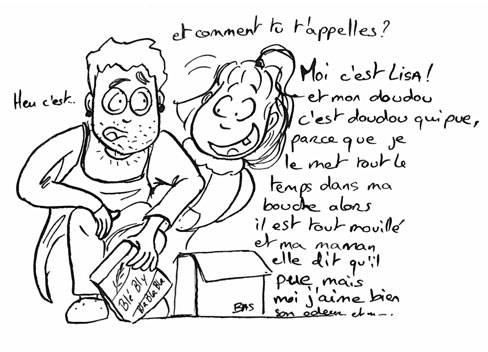 et comment tu t'appelles?
Heu c'est..
Moi c'est LISA!
et mon doudou
c'est doudou qui pue,
parce que je
le met tout le
temps dans ma
bouche alors
il est tout mouillé
et ma maman
elle dit qu'il
pue, mais
moi j'aime bien
son odeur et m....
Blé Bly
Bla Bla Bla
BAS